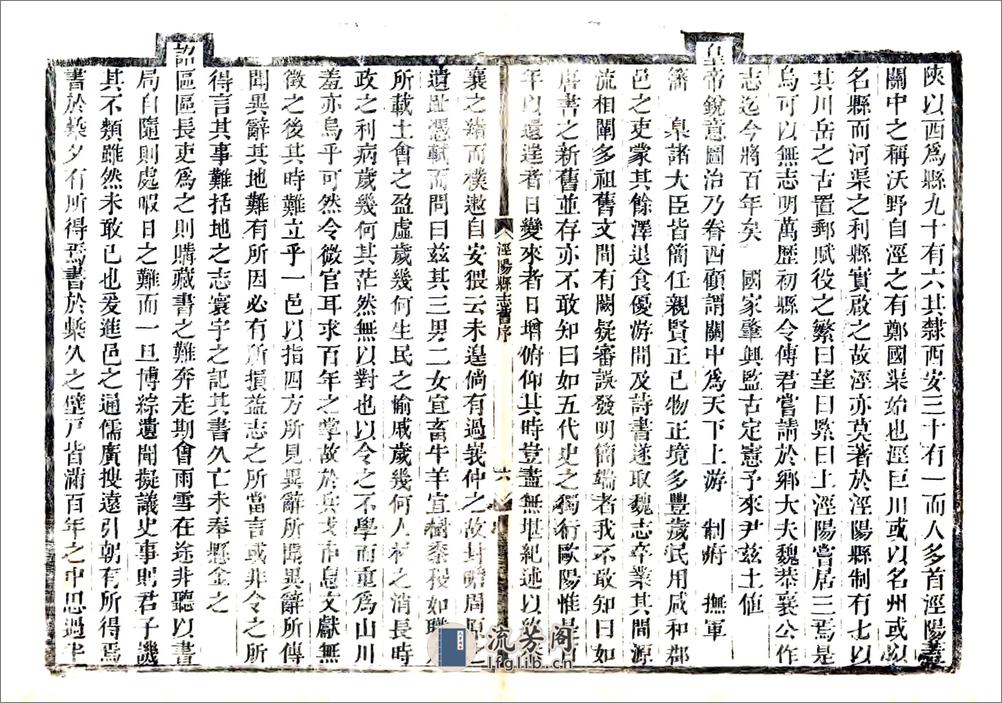 陝以西爲縣九十有六其隸西安三十有一而人多首涇陽蓋
關中之稱沃野自涇之有鄭國渠始也涇巨川或以名州或以
名縣而河渠之利縣實啟之故涇亦莫著於涇陽縣制有七以
其川岳之古置郵賦役之繁曰望曰緊曰上涇陽嘗居三焉是
烏可以無志明萬歷初縣令傅君嘗請於鄉大夫魏恭襄公作
志迄今將百年矣 國家肇興監古定憲予來尹茲土值
皇帝銳意圖治乃眷西顧謂關中爲天下上游 制府 撫軍
藩 臬諸大臣皆簡任親賢正己物正境多豐歲民用咸和郡
邑之吏蒙其餘澤退食優游間及詩書遂取魏志卒業其間源
流相闡多祖舊文間有闕疑審誤發明簡端者我不敢知曰如
唐書之新舊並存亦不敢知曰如五代史之獨行歐陽惟是百
年以還逝者日變來者日增俯仰其時豈盡無堪紀述以
襄之緒而樸遬自安猥云未遑倘有過義仲之故封瞻周原之
遺趾憑軾而問曰茲其三男二女宜畜牛羊宜樹黍稷如職
所載土會之盈虛歲幾何生民之愉戚歲幾何人材之消長時
政之利病歲幾何其茫然無以對也以令之不學而重爲山川
羞亦烏乎可然令微官耳求百年之掌故於兵戈甫息文獻無
徵之後其時難立乎一邑以指四方所見異辭所聞異辭所傳
聞異辭其地難有所因必有所損益志之所當言或非令之所
得言其事難括地之志寰宇之記其書久亡未奉懸金之
詔區區長吏爲之則購藏書之難奔走期會雨雪在途非聽以書
局自隨則處暇日之難而一旦博綜遺聞擬議史事則君子譏
其不類雖然未敢已也爰進邑之通儒廣搜遠引朝有所得焉
書於槧夕有所得焉書於槧久之壁戶皆滿百年之中思過半
涇陽縣志舊序
六
流芳閣
lfglib.cn